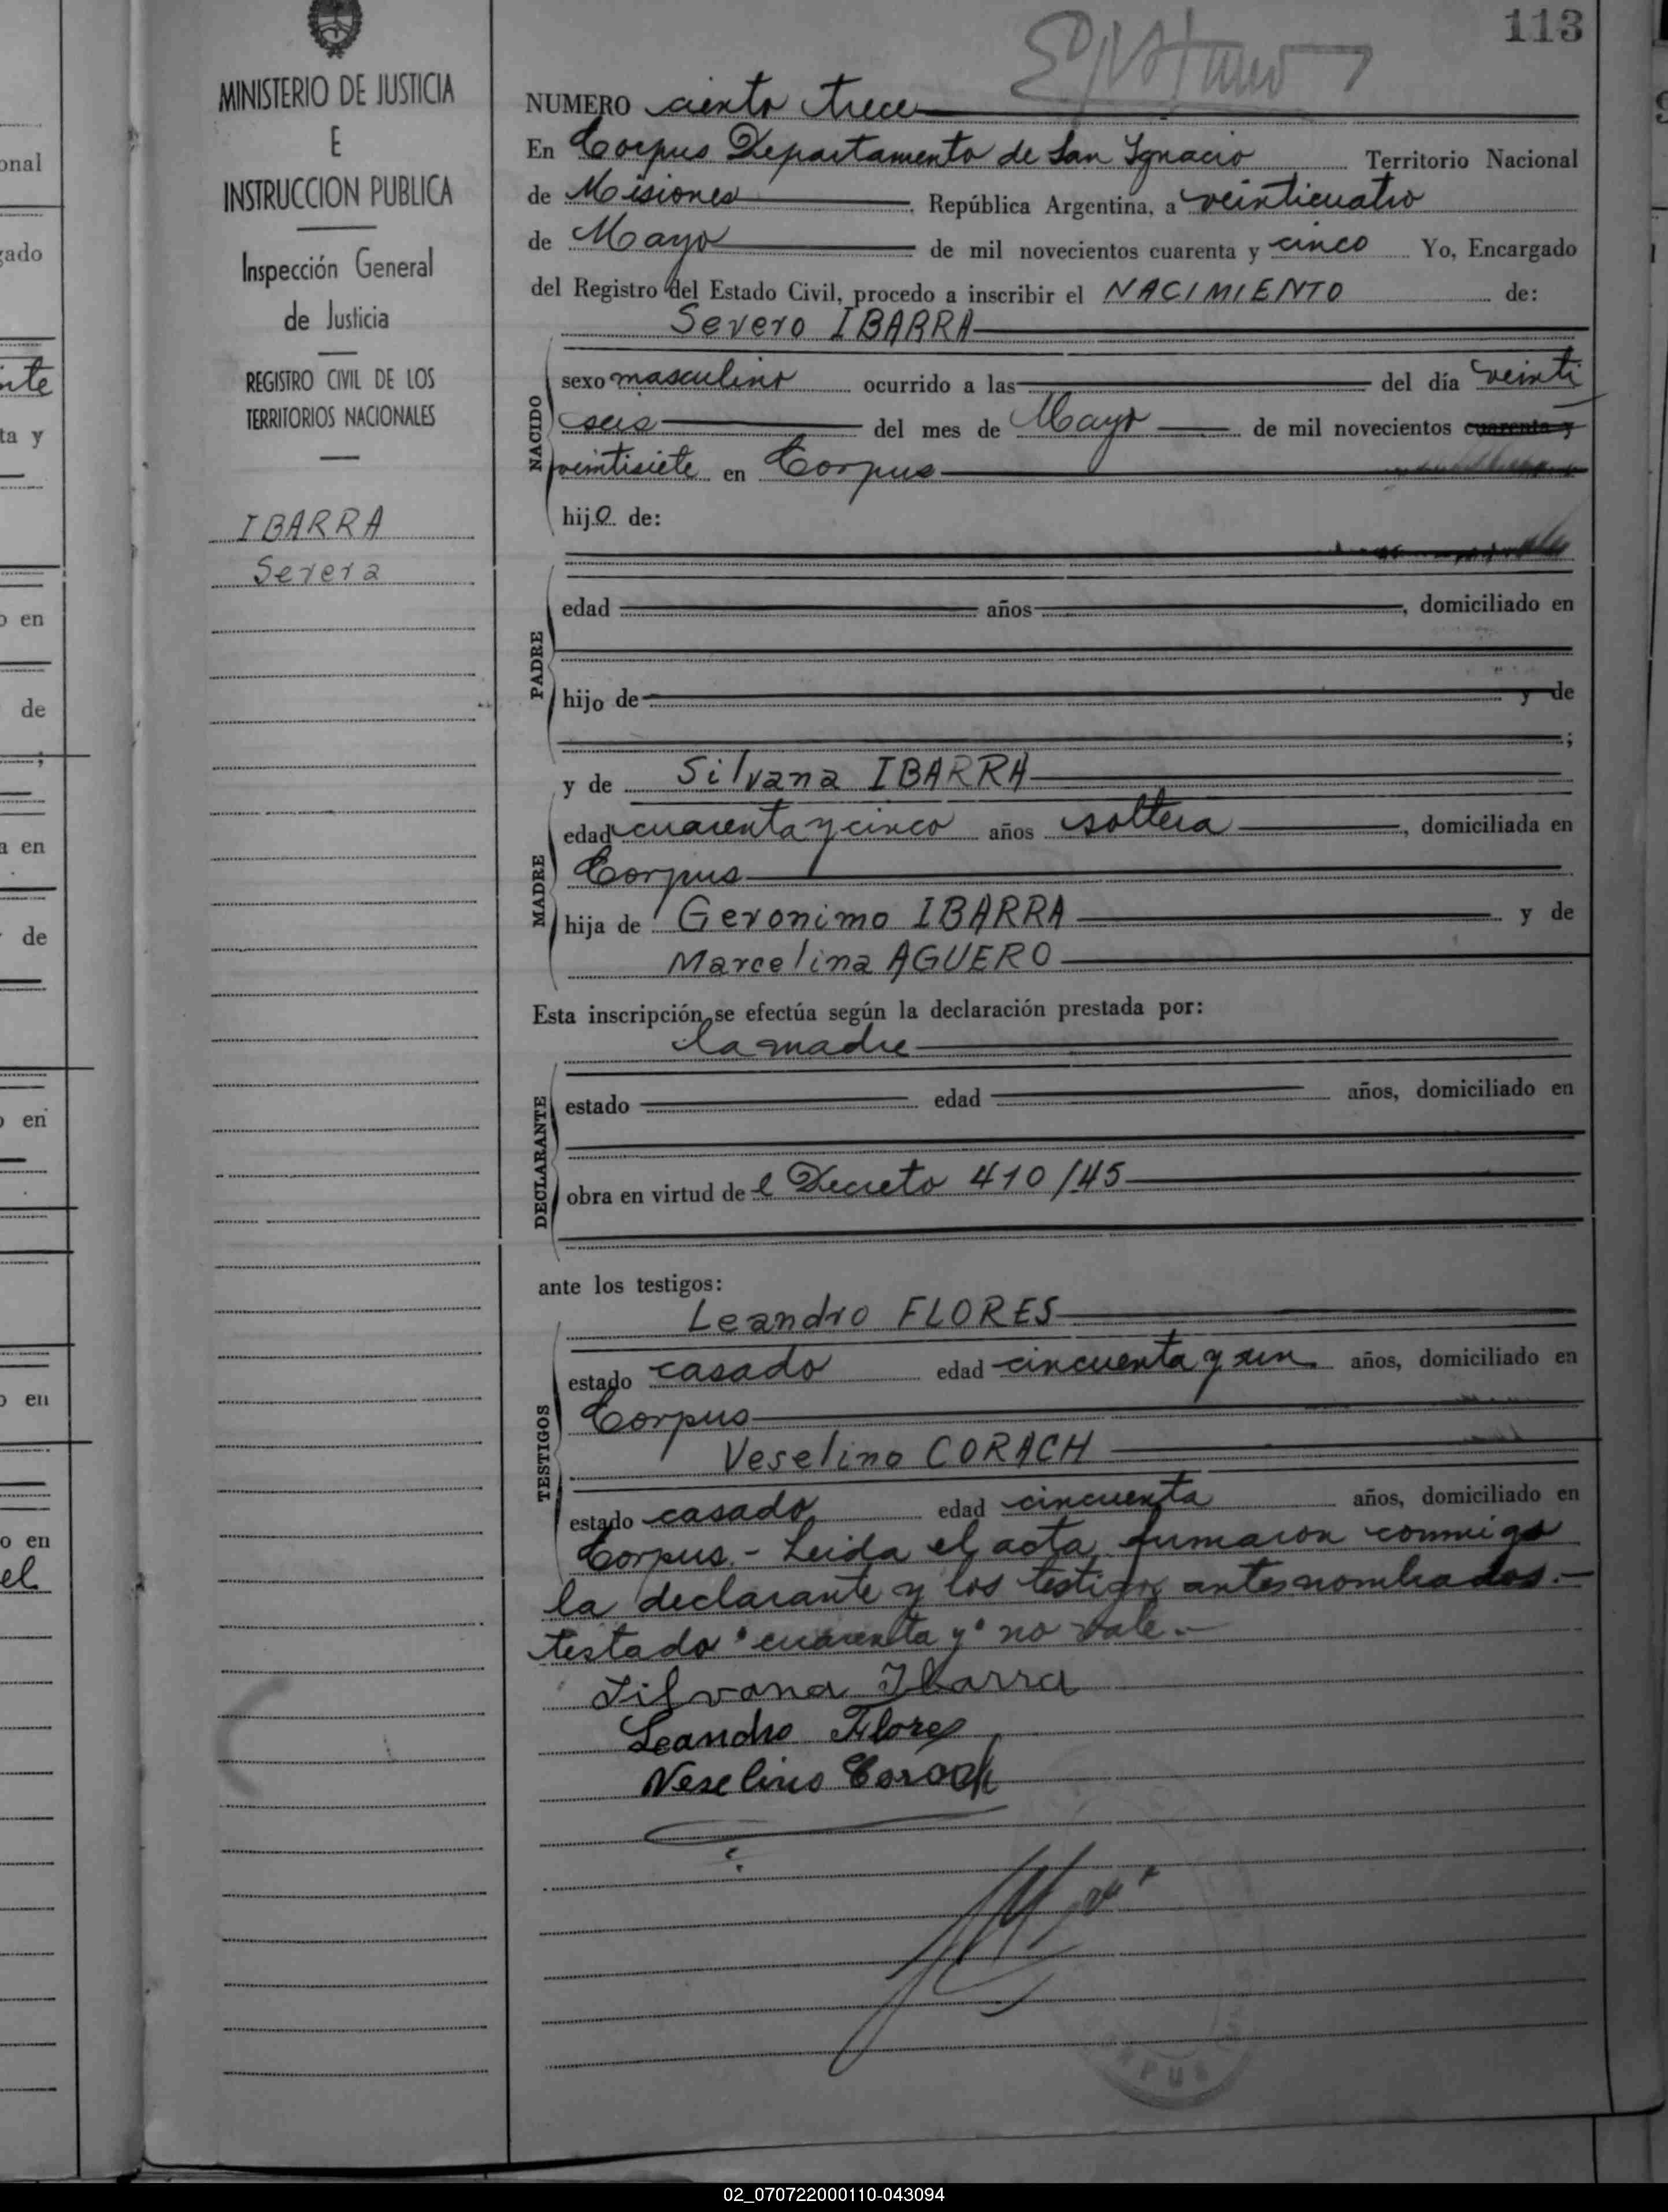 113
MINISTERIO DE JUSTICIA
E
INSTRUCCION PUBLICA
Inspección General
de Justicia
REGISTRO CIVIL DE LOS
TERRITORIOS NACIONALES
IBARRA
Severa
NUMERO ciento trece
En Corpus Departamento de San Ygnacio Territorio Nacional
de Misiones República Argentina, a veinticuatro
de Mayo de mil novecientos cuarenta y cinco Yo, Encargado
del Registro del Estado Civil, procedo a inscribir el NACIMIENTO de:
Severo IBARRA
NACIDO
sexo masculino ocurrido a las del día veinti
seis del mes de Mayo de mil novecientos cuarenta y
veintisiete en Corpus
hijo de:
PADRE
edad años , domiciliado en
hijo de y de
;
y de Silvana IBARRA
MADRE
edad cuarenta y cinco años soltera , domiciliada en
Corpus
hija de Geronimo IBARRA y de
Marcelina AGUERO
Esta inscripción se efectúa según la declaración prestada por:
la madre
DECLARANTE
estado edad años, domiciliado en
obra en virtud de l Decreto 410/45
ante los testigos:
Leandro FLORES
TESTIGOS
estado casado edad cincuenta y un años, domiciliado en
Corpus
Veselino CORACH
estado casado edad cincuenta años, domiciliado en
Corpus.- Leida el acta firmaron conmigo
la declarante y los testigos antes nombrados.-
testado "cuarenta y" no vale.-
Silvana Ibarra
Leandro Flores
Veselino Corach
02_070722000110-043094